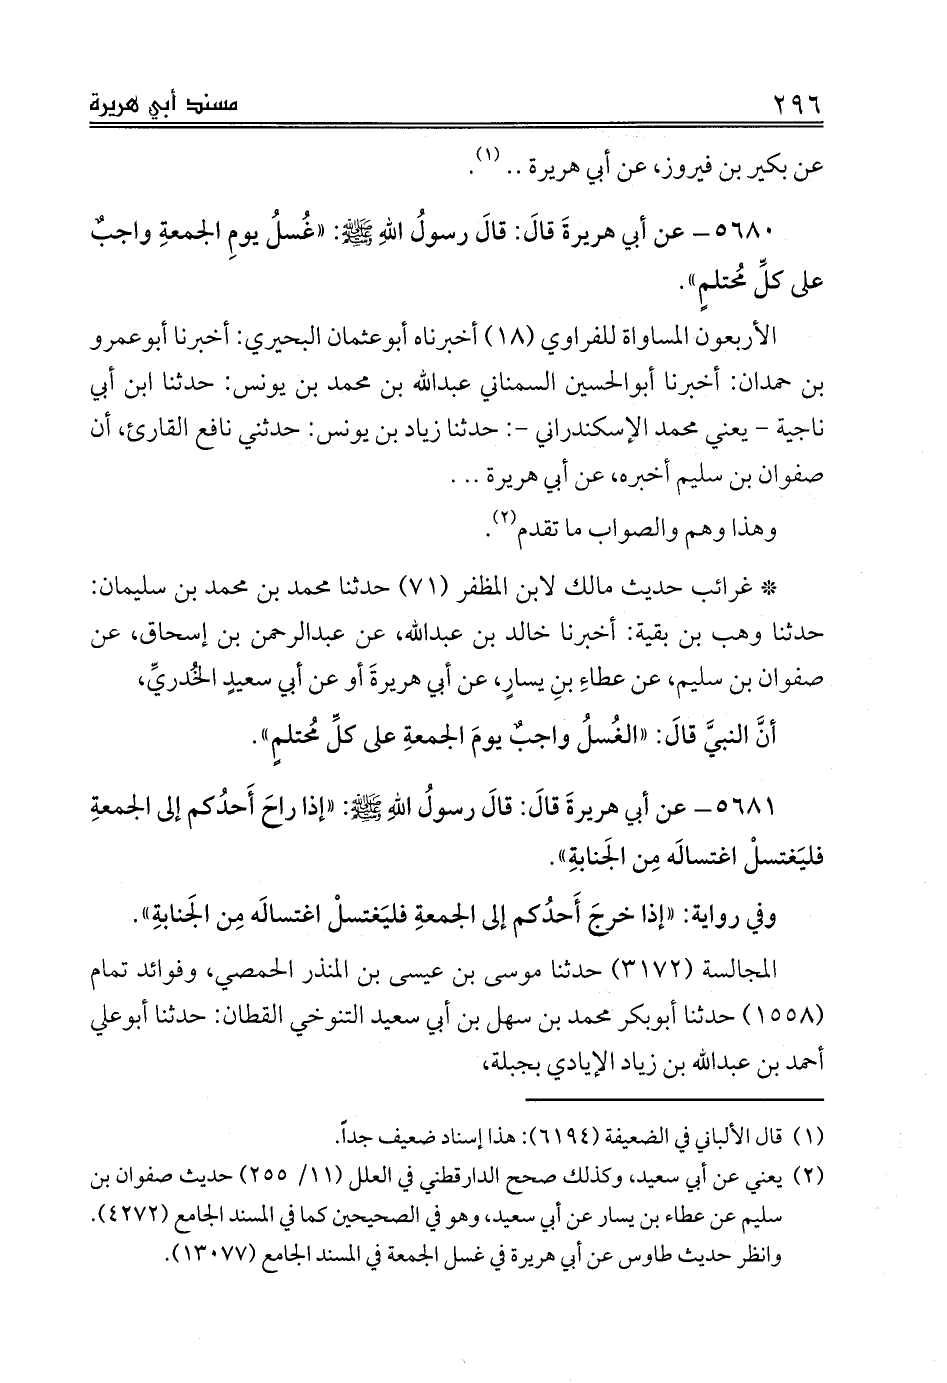 ٢٩٦ مسند أبي هريرة
عن بكير بن فيروز، عن أبي هريرة .. (١).
٥٦٨٠ــ عن أبي هريرةَ قالَ: قالَ رسولُ اللهِ ﷺ: «غُسلُ يومِ الجمعةِ واجبٌ
على كلِّ مُحتلمٍ».
الأربعون المساواة للفراوي (١٨) أخبرناه أبوعثمان البحيري: أخبرنا أبوعمرو
بن حمدان: أخبرنا أبوالحسين السمناني عبدالله بن محمد بن يونس: حدثنا ابن أبي
ناجية – يعني محمد الإسكندراني –: حدثنا زياد بن يونس: حدثني نافع القارئ، أن
صفوان بن سليم أخبره، عن أبي هريرة ...
وهذا وهم والصواب ما تقدم(٢).
* غرائب حديث مالك لابن المظفر (٧١) حدثنا محمد بن محمد بن سليمان:
حدثنا وهب بن بقية: أخبرنا خالد بن عبدالله، عن عبدالرحمن بن إسحاق، عن
صفوان بن سليم، عن عطاءِ بنِ يسارٍ، عن أبي هريرةَ أو عن أبي سعيدٍ الخُدريِّ،
أنَّ النبيَّ قالَ: «الغُسلُ واجبٌ يومَ الجمعةِ على كلِّ مُحتلمٍ».
٥٦٨١ــ عن أبي هريرةَ قالَ: قالَ رسولُ اللهِ ﷺ: «إذا راحَ أَحدُكم إلى الجمعةِ
فليَغتسلْ اغتسالَه مِن الجَنابةِ».
وفي رواية: «إذا خرجَ أَحدُكم إلى الجمعةِ فليَغتسلْ اغتسالَه مِن الجَنابةِ».
المجالسة (٣١٧٢) حدثنا موسى بن عيسى بن المنذر الحمصي، وفوائد تمام
(١٥٥٨) حدثنا أبوبكر محمد بن سهل بن أبي سعيد التنوخي القطان: حدثنا أبوعلي
أحمد بن عبدالله بن زياد الإيادي بجبلة،
(١) قال الألباني في الضعيفة (٦١٩٤): هذا إسناد ضعيف جداً.
(٢) يعني عن أبي سعيد، وكذلك صحح الدارقطني في العلل (١١/ ٢٥٥) حديث صفوان بن
سليم عن عطاء بن يسار عن أبي سعيد، وهو في الصحيحين كما في المسند الجامع (٤٢٧٢).
وانظر حديث طاوس عن أبي هريرة في غسل الجمعة في المسند الجامع (١٣٠٧٧).